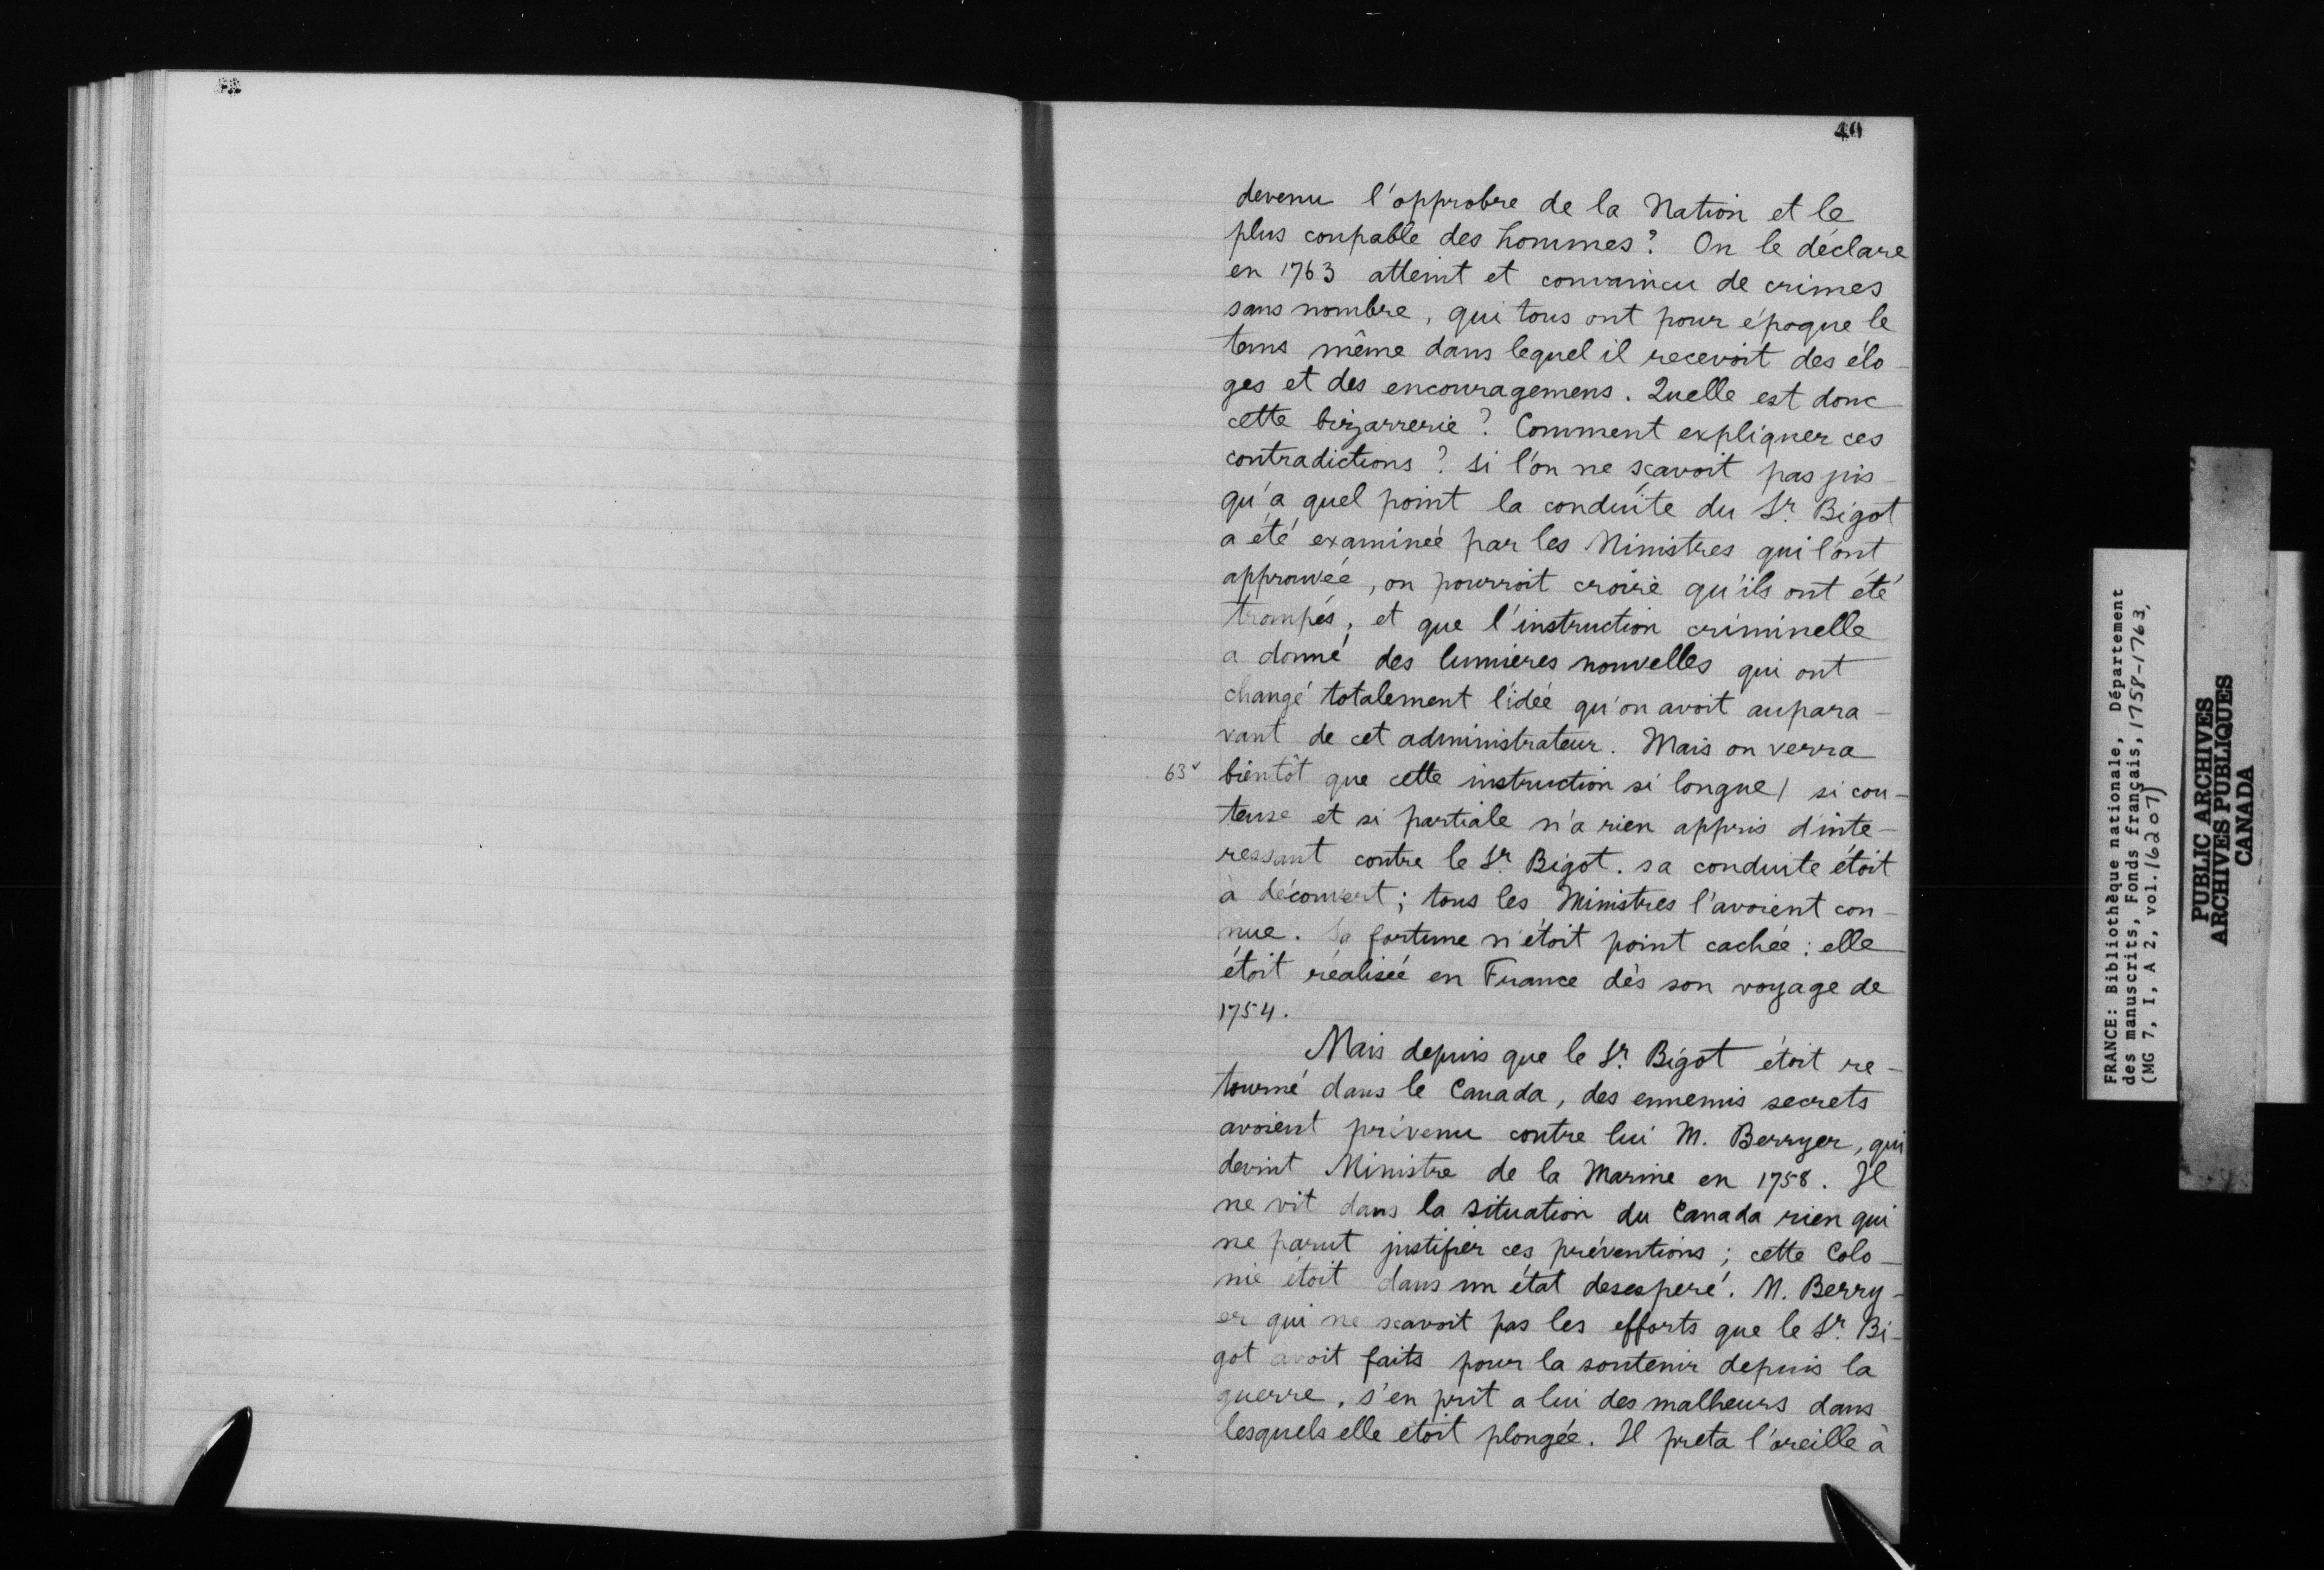 40
devenu l'opprobre de la Nation et le
plus coupable des hommes ? On le déclare
en 1763 atteint et convaincu de crimes
sans nombre, qui tous ont pour époque le
tems même dans lequel il recevoit des élo-
ges et des encouragemens. Quelle est donc
cette bizarrerie ? Comment expliquer ces
contradictions ? si l'on ne sçavoit pas jus-
qu'a quel point la conduite du Sr. Bigot
a été examinée par les Ministres qui l'ont
approuvée, on pourroit croire qu'ils ont été
trompés, et que l'instruction criminelle
a donné des lumières nouvelles qui ont
changé totalement l'idée qu'on avoit aupara-
vant de cet administrateur. Mais on verra
63v bientôt que cette instruction si longue / si cou-
teuse et si partiale n'a rien appris d'inte-
ressant contre le Sr. Bigot. sa conduite étoit
à découvert ; tous les Ministres l'avoient con-
nue. Sa fortune n'étoit point cachée : elle
étoit réalisée en France dès son voyage de
1754.
Mais depuis que le Sr. Bigot étoit re-
tourné dans le Canada, des ennemis secrets
avoient prévenu contre lui M. Berryer, qui
devint Ministre de la Marine en 1758. Il
ne vit dans la situation du Canada rien qui
ne parut justifier ces préventions ; cette Colo-
nie étoit dans un état desesperé. M. Berry-
er qui ne scavoit pas les efforts que le Sr. Bi-
got avoit faits pour la soutenir depuis la
guerre, s'en prit a lui des malheurs dans
lesquels elle etoit plongée. Il preta l'oreille à
FRANCE: Bibliothèque nationale, Département
des manuscrits, Fonds français, 1758-1763,
(MG 7, I, A 2, vol. 16207)
PUBLIC ARCHIVES
ARCHIVES PUBLIQUES
CANADA